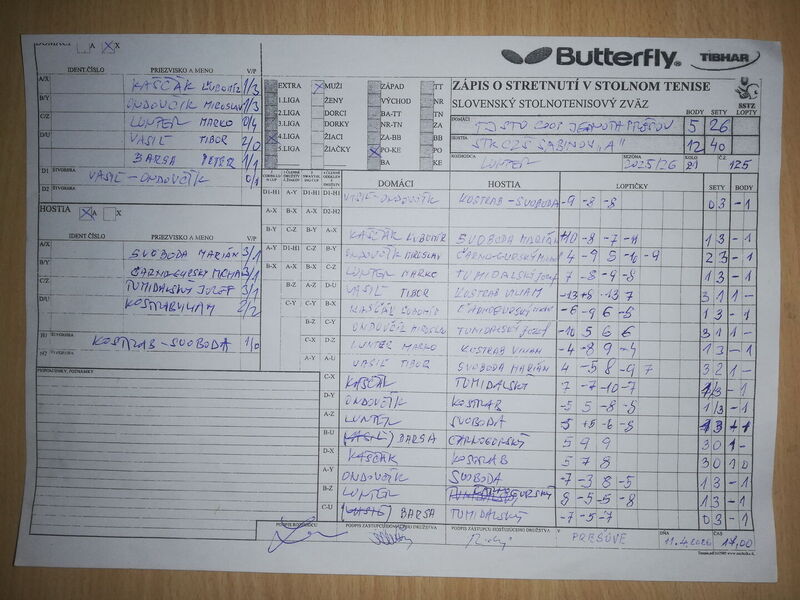 DOMÁCI A X
Butterfly TIBHAR
IDENT.ČÍSLO PRIEZVISKO A MENO V/P
A/X KAŠČÁK ĽUBOMÍR 1/3
B/Y ONDOVČÍK MIROSLAV 1/3
C/Z LUNTER MARKO 0/4
D/U VASIĽ TIBOR 2/0
BARSA PETER 1/1
D1 ŠTVORHRA VASIĽ-ONDOVČÍK 0/1
D2 ŠTVORHRA
EXTRA MUŽI ZÁPAD TT
1.LIGA ŽENY VÝCHOD NR
2.LIGA DORCI BA-TT ZA
3.LIGA DORKY NR-TN ZA
4.LIGA ŽIACI ZA-BB BB
5.LIGA ŽIAČKY PO-KE PO
BA KE
ZÁPIS O STRETNUTÍ V STOLNOM TENISE
SLOVENSKÝ STOLNOTENISOVÝ ZVÄZ SSTZ
BODY SETY LOPTY
DOMÁCI TJ STO COOP JEDNOTA PREŠOV 5 26
HOSTIA STK CZŠ SABINOV "A" 12 40
ROZHODCA LUNTER SEZÓNA 2025/26 KOLO 21 Č.Z. 125
DOMÁCI HOSTIA LOPTIČKY SETY BODY
D1-H1 A-Y D1-H1 C-Z D1-H1 VASIĽ-ONDOVČÍK KOSTRAB-SVOBODA -9 -8 -8 03 -1
A-X B-X A-X D2-H2
B-Y C-Y B-Y A-X KAŠČÁK ĽUBOMÍR SVOBODA MARIÁN +10 -8 -7 -11 13 -1
A-Y D1-H1 C-Z B-Y ONDOVČÍK MIROSLAV ČARNOGURSKÝ 4 -9 5 -10 -9 23 -1
B-X A-X B-X C-Z LUNTER MARKO TUMIDALSKÝ JOZEF 7 -8 -9 -8 13 -1
B-Z A-Z D-U VASIĽ TIBOR KOSTRAB VILIAM -13 +8 -13 7 31 1-
C-Y B-X KAŠČÁK ĽUBOMÍR ČARNOGURSKÝ -6 -9 6 -5 13 -1
B-Z C-Y ONDOVČÍK MIROSLAV TUMIDALSKÝ JOZEF -10 5 6 6 31 1-
C-X D-Z LUNTER MARKO KOSTRAB VILIAM -4 -8 9 -4 13 -1
A-Y A-U VASIĽ TIBOR SVOBODA MARIÁN -4 -5 8 -9 7 32 1-
C-X KAŠČÁK TUMIDALSKÝ 7 -7 -10 -7 1/3 -1
D-Y ONDOVČÍK KOSTRAB -5 5 -8 -8 1/3 -1
A-Z LUNTER SVOBODA +5 -6 -8 13
B-U BARSA ČARNOGURSKÝ 5 9 9 30 1-
D-X KAŠČÁK KOSTRAB 5 7 8 30 10
A-Y ONDOVČÍK SVOBODA -7 -3 8 -5 13 -1
B-Z LUNTER 8 -5 -5 -8 13 -1
C-U BARSA TUMIDALSKÝ -7 -5 -7 03 -1
HOSTIA A X
IDENT.ČÍSLO PRIEZVISKO A MENO V/P
A/X SVOBODA MARIÁN 3/1
B/Y ČARNOGURSKY 3/1
C/Z TUMIDALSKÝ JOZEF 3/1
D/U KOSTRAB VILIAM 2/2
H1 ŠTVORHRA KOSTRAB-SVOBODA 1/0
H2 ŠTVORHRA
PRIPOMIENKY, POZNÁMKY
PODPIS ROZHODCU PODPIS ZÁSTUPCU DOMÁCEHO DRUŽSTVA PODPIS ZÁSTUPCU HOSŤUJÚCEHO DRUŽSTVA V PREŠOVE DŇA 11.4.2026 ČAS 17,00